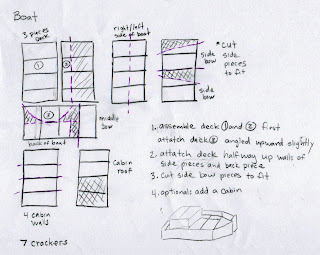 Boat
3 pieces
deck
1
3
right/left
side of boat
side
bow
side
bow
* cut
side
pieces
to fit
2
middle
bow
back of boat
4 cabin
walls
Cabin
roof
7 crackers
1. assemble deck 1 and 2 first
attatch deck 3 angled upward slightly
2. attatch deck halfway up walls of
side pieces and back piece
3. Cut side bow pieces to fit
4. optional: add a cabin